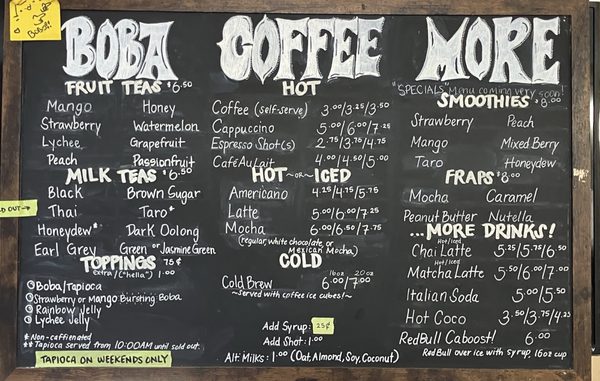 Boba!
BOBA
FRUIT TEAS $6.50
Mango Honey
Strawberry Watermelon
Lychee Grapefruit
Peach Passionfruit
MILK TEAS $6.50
Black Brown Sugar
OLD OUT→
Thai Taro*
Honeydew* Dark Oolong
Earl Grey Green or Jasmine Green
TOPPINGS 75¢
extra/("hella") 1.00
Boba/Tapioca
Strawberry or Mango Bursting Boba
Rainbow Jelly
Lychee Jelly
* Non-caffienated
** Tapioca served from 10:00AM until sold out.
TAPIOCA ON WEEKENDS ONLY
COFFEE
HOT
Coffee (self-serve) 3.00/3.25/3.50
Cappuccino 5.00/6.00/7.25
Espresso Shot(s) 2.75/3.75/4.75
Café Au Lait 4.00/4.50/5.00
HOT ~or~ ICED
Americano 4.25/4.75/5.75
Latte 5.00/6.00/7.25
Mocha 6.00/6.50/7.75
(regular, white chocolate, or
Mexican Mocha)
COLD
16oz 20oz
Cold Brew 6.00/7.00
~Served with coffee ice cubes!~
Add Syrup: 25¢
Add Shot: 1.00
Alt. Milks: 1.00 (Oat, Almond, Soy, Coconut)
MORE
"SPECIALS" Menu coming very soon!
SMOOTHIES $8.00
Strawberry Peach
Mango Mixed Berry
Taro Honeydew
FRAPS $8.00
Mocha Caramel
Peanut Butter Nutella
...MORE DRINKS!
Hot/Iced
Chai Latte 5.25/5.75/6.50
Hot/Iced
Matcha Latte 5.50/6.00/7.00
Italian Soda 5.00/5.50
Hot Coco 3.50/3.75/4.25
RedBull Caboost! 6.00
RedBull over ice with syrup. 16oz cup